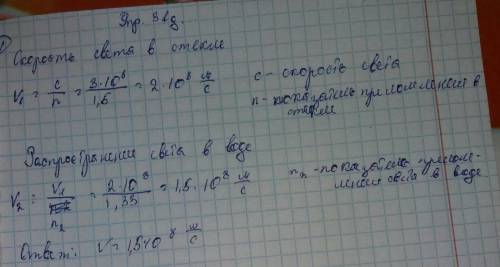 Упр. 31д.
Скорость света в стекле
V₁ = c/n = 3·10⁸/1,5 = 2·10⁸ м/с
c – скорость света
n – показатель преломления в
стекле
Распространение света в воде
V₂ = V₁/n₂ = 2·10⁸/1,33 = 1,5·10⁸ м/с
n₂ – показатель прелом-
ления света в воде
Ответ: V = 1,5·10⁸ м/с